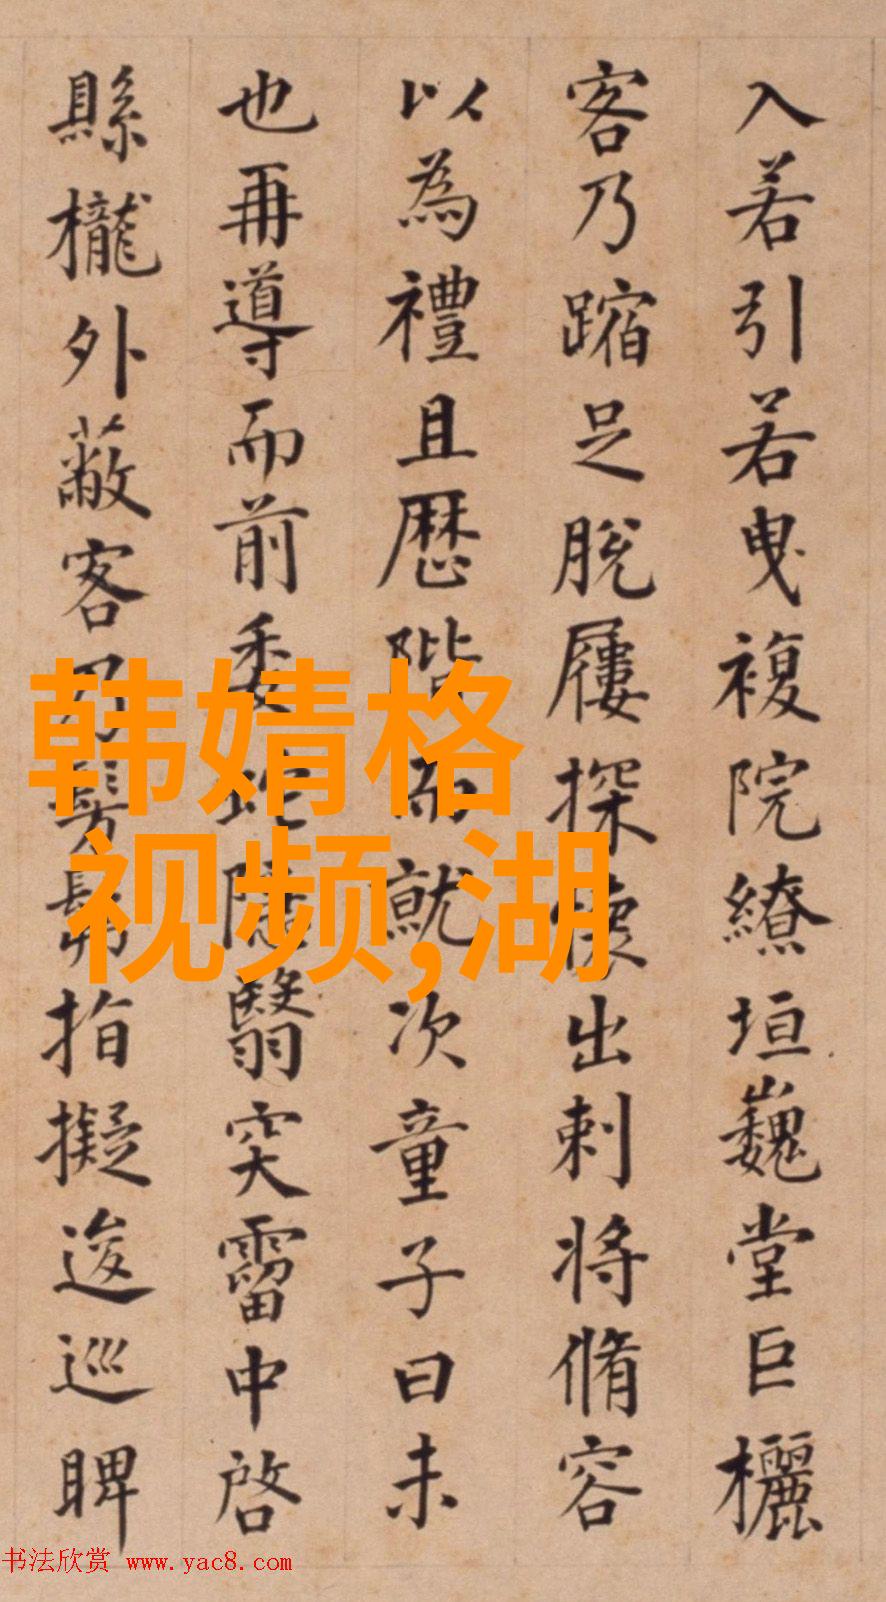 入若引若曳複院繚垣巍堂巨欐
客乃蹜足脫屨探懷出刺將脩容
以為禮且歷階而就次童子曰未
也再導而前委蛇隱翳突霤中啓
縣櫳外蔽客乃髣髴指擬逡巡睥
韩婧格
视频,湖
书法欣赏 www.yac8.com